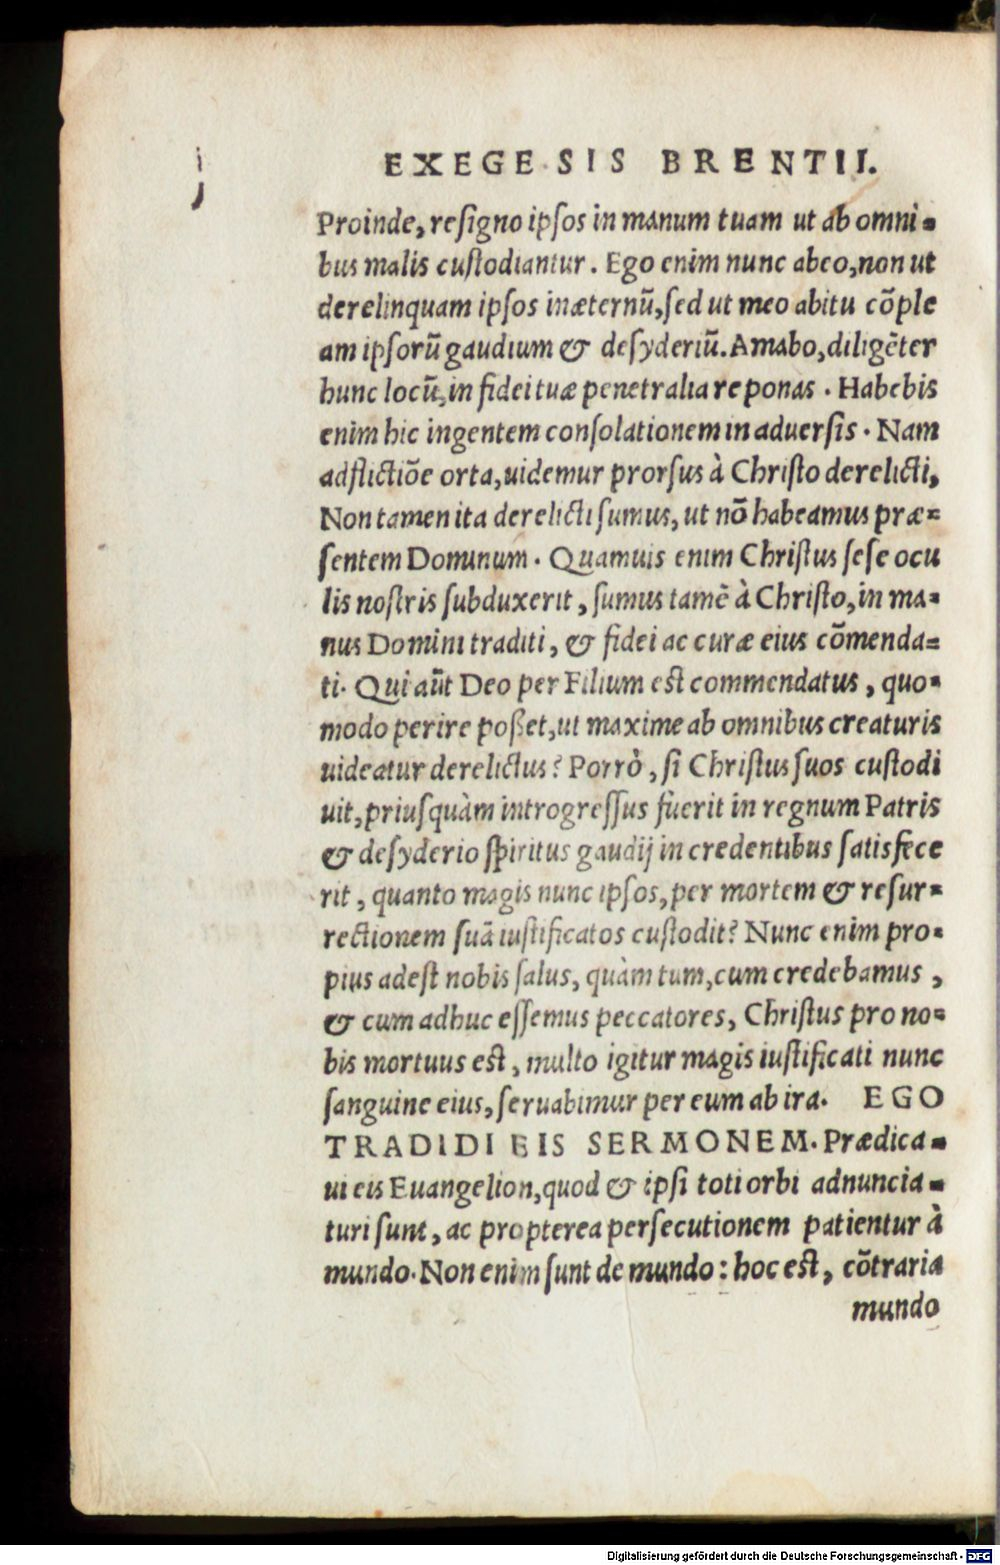 EXEGESIS BRENTII.
Proinde, resigno ipsos in manum tuam ut ab omni=
bus malis custodiantur. Ego enim nunc abeo, non ut
derelinquam ipsos inæternū, sed ut meo abitu cōple
am ipsorū gaudium & desyderiū. Amabo, diligēter
hunc locū, in fidei tuæ penetralia reponas. Habebis
enim hic ingentem consolationem in aduersis. Nam
adflictiōe orta, uidemur prorsus à Christo derelicti,
Non tamen ita derelicti sumus, ut nō habeamus præ=
sentem Dominum. Quamuis enim Christus sese ocu
lis nostris subduxerit, sumus tamē à Christo, in ma=
nus Domini traditi, & fidei ac curæ eius cōmenda=
ti. Qui aūt Deo per Filium est commendatus, quo=
modo perire poßet, ut maxime ab omnibus creaturis
uideatur derelictus? Porrò, si Christus suos custodi
uit, priusquàm introgressus fuerit in regnum Patris
& desyderio spiritus gaudij in credentibus satisfece
rit, quanto magis nunc ipsos, per mortem & resur=
rectionem suā iustificatos custodit? Nunc enim pro=
pius adest nobis salus, quàm tum, cum credebamus,
& cum adhuc essemus peccatores, Christus pro no=
bis mortuus est, multo igitur magis iustificati nunc
sanguine eius, seruabimur per eum ab ira. EGO
TRADIDI EIS SERMONEM. Prædica=
ui eis Euangelion, quod & ipsi toti orbi adnuncia=
turi sunt, ac propterea persecutionem patientur à
mundo. Non enim sunt de mundo: hoc est, cōtraria
mundo
Digitalisierung gefördert durch die Deutsche Forschungsgemeinschaft - DFG